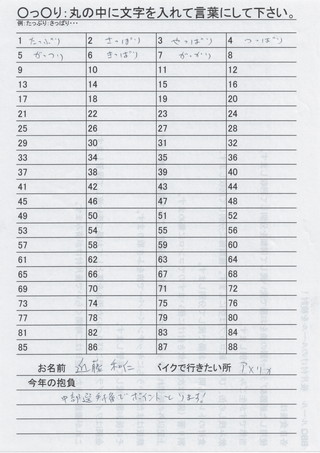 〇っ〇り：丸の中に文字を入れて言葉にして下さい。
例：たっぷり・きっぱり・・・
1 たっぷり 2 さっぱり 3 やっぱり 4 つっぱり
5 がっつり 6 きっぱり 7 がっかり 8
9 10 11 12
13 14 15 16
17 18 19 20
21 22 23 24
25 26 27 28
29 30 31 32
33 34 35 36
37 38 39 40
41 42 43 44
45 46 47 48
49 50 51 52
53 54 55 56
57 58 59 60
61 62 63 64
65 66 67 68
69 70 71 72
73 74 75 76
77 78 79 80
81 82 83 84
85 86 87 88
お名前 近藤 和仁 バイクで行きたい所 アメリカ
今年の抱負
中部選手権でポイントとります!